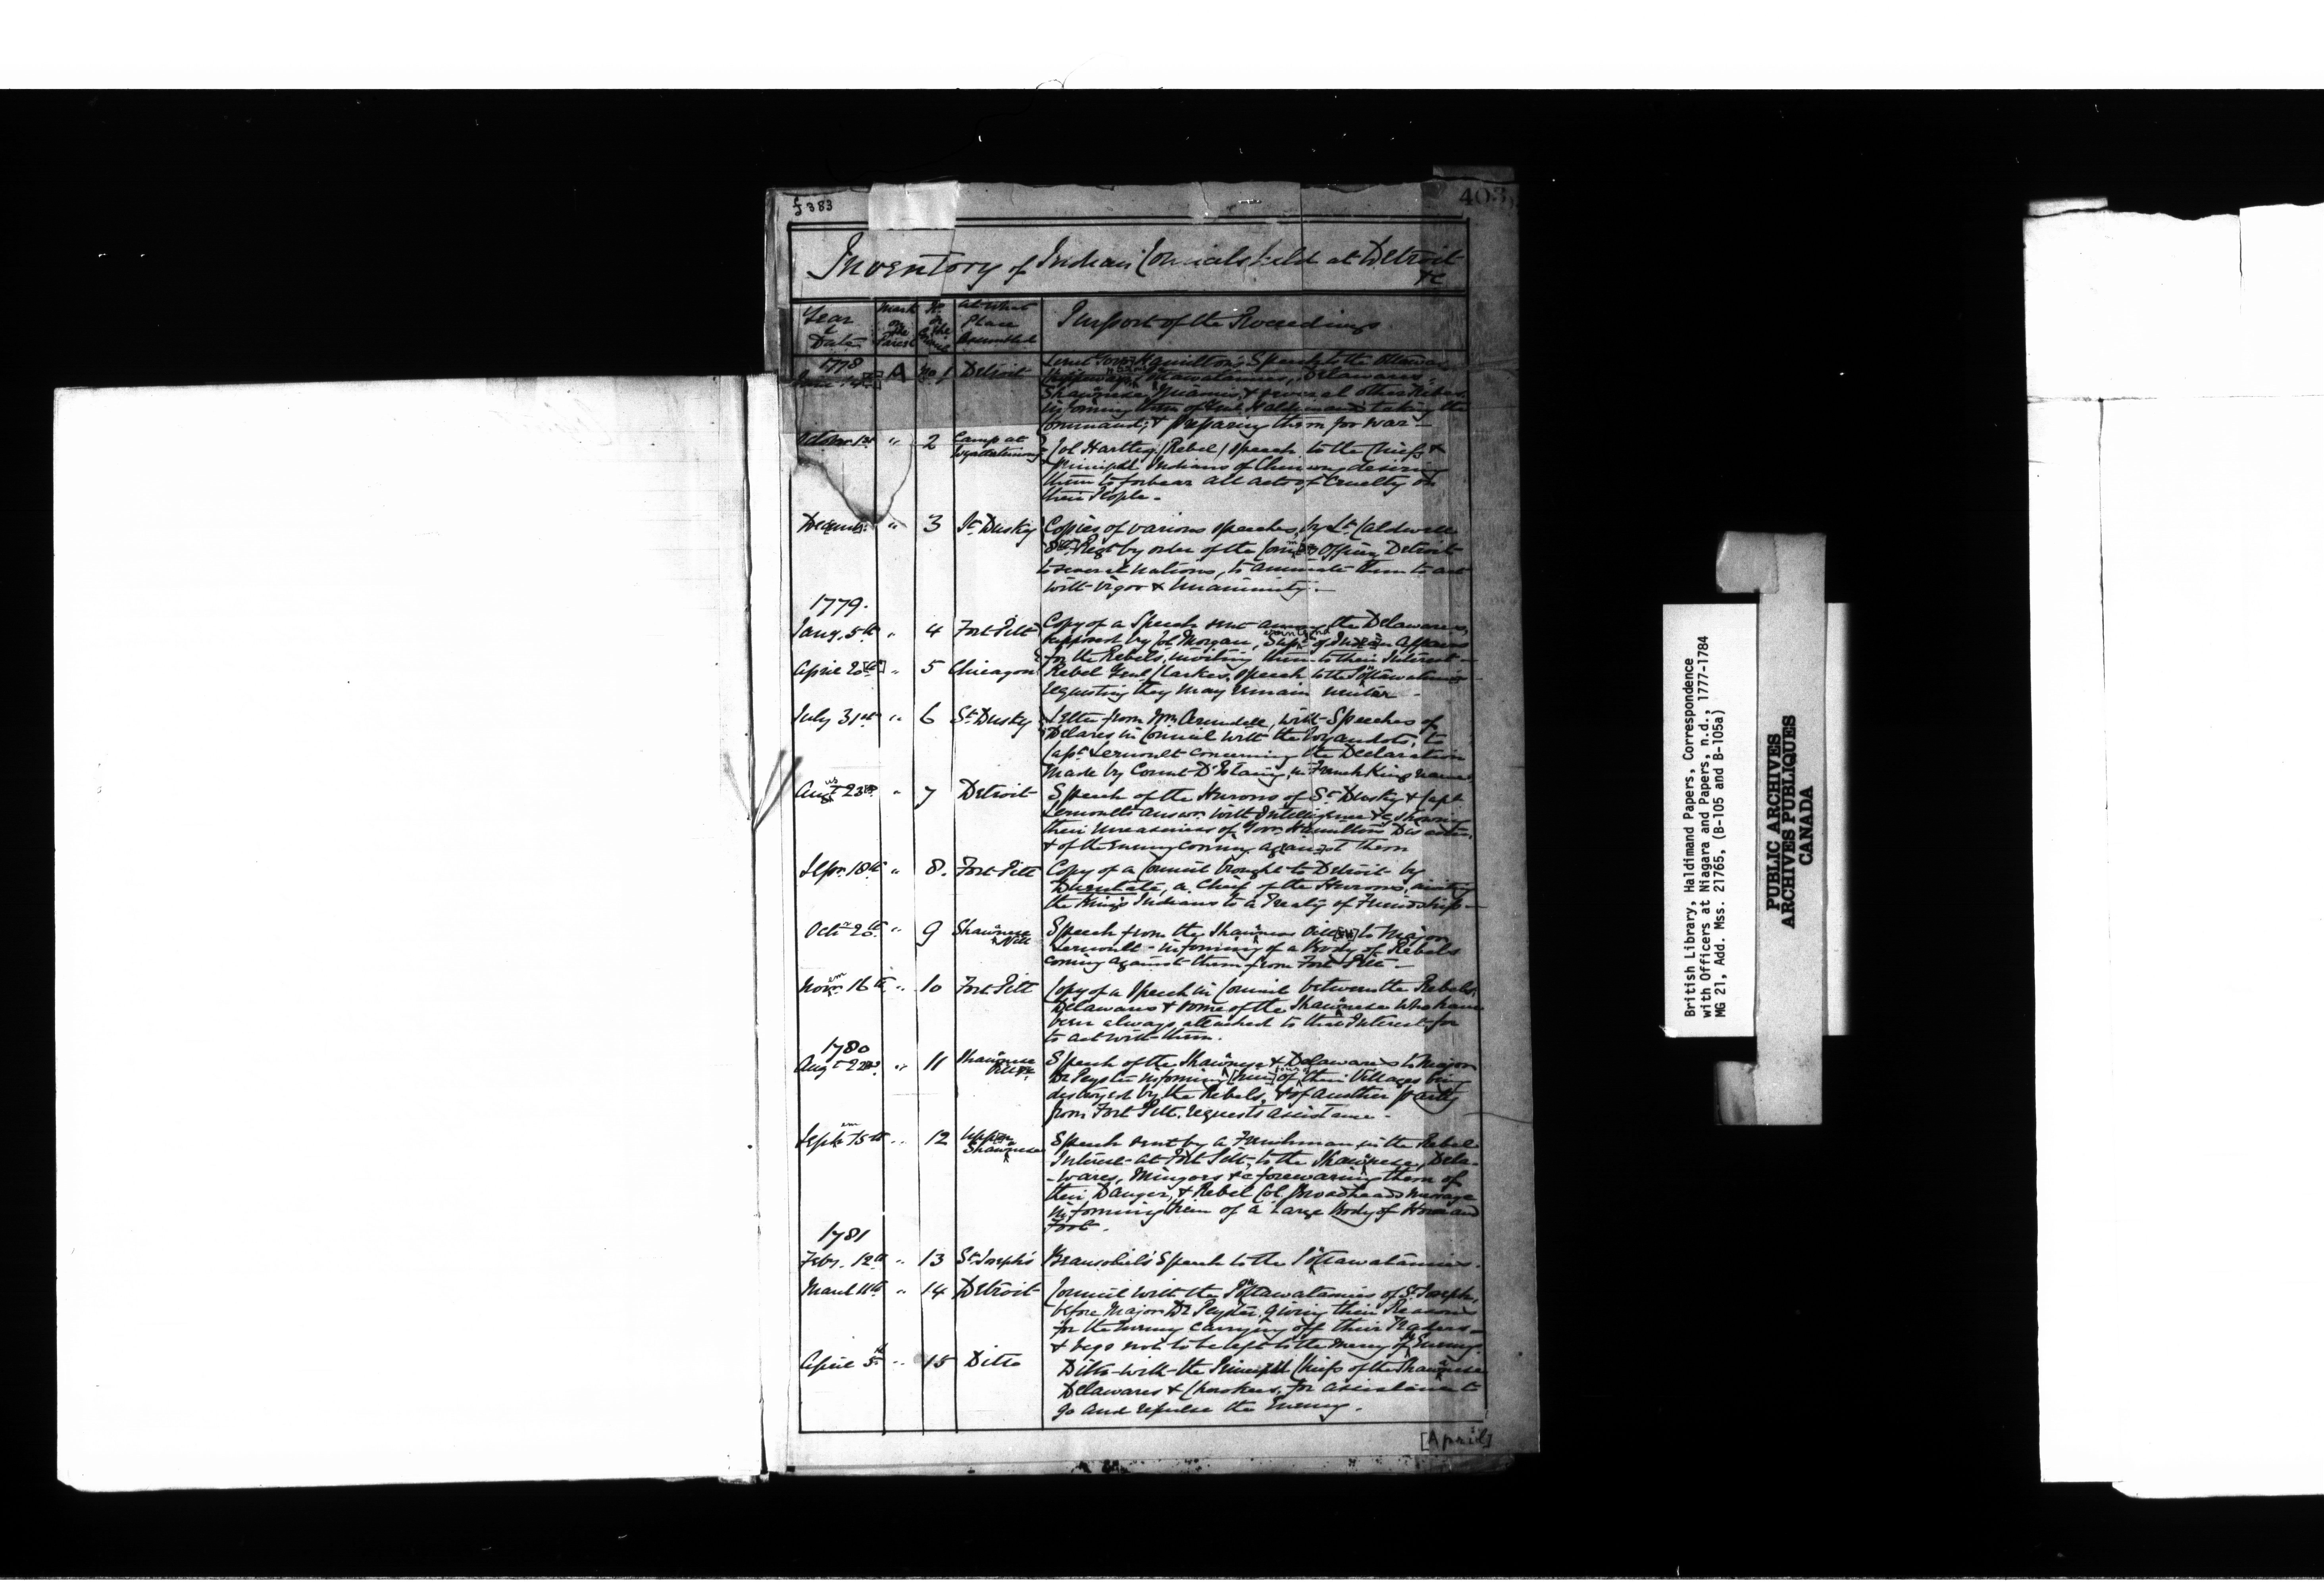 f 383
403
Inventory of Indian Councils held at Detroit
&c
Year & Date
Mark on the Parcel
No. on the Council
At What Place Assembled
Purport of the Proceedings
1778
June 14th A No 1 Detroit Lieut Govr Hamilton's Speech to the Ottawas
Chippewas, Pottawatamies, Delawares,
Shawnese, Miamis, & several other Tribes
informing them of Genl Haldimand taking the
Command; & preparing them for war—
October 1st " 2 Camp at Col Hartley (Rebel) speech to the Chiefs &
principal Indians of Chemung desiring
them to forbear all acts of Cruelty on
their People.
Decemb: " 3 St Dusky Copies of various speeches, by Lt Caldwell
8th Regt by order of the Comg Officer Detroit
to several nations, to animate them to act
with vigor & Unanimity.—
1779.
Jany. 5th " 4 Fort Pitt Copy of a Speech sent among the Delawares,
supposed by Col Morgan, Supt of Indian Affairs
for the Rebels, inviting them to their Interest—
April 20th " 5 Chicagon Rebel Genl Clarkes, speech to the Pottawatamies
requesting they may remain neuter.
July 31st " 6 St Dusky Letter from Wm Arundell, with Speeches of
Delares in Council with the Wyandots, to
Capt Lernoult concerning the Declaration
made by Count D'Estaing, in French Kings name.
Augt 23rd " 7 Detroit Speech of the Hurons of St Dusky & Capt
Lernoults answr with Intelligence &c shewing
their Uneasiness of Govr Hamiltons Disaster,
& of the Enemy coming against them
Sepr 18th " 8. Fort Pitt Copy of a Council brought to Detroit by
a Chief of the Hurons, inviting
the Kings Indians to a Treaty of Friendship—
Octr 20th " 9 Shawnese Vill Speech from the Shawnese to Major
Lernoult—informing of a Body of Rebels
coming against them from Fort Pitt—
Novr 16th " 10 Fort Pitt Copy of a Speech in Council between the Rebels,
Delawares & some of the Shawnese Who have
been always attached to their Interest for
to act with them.
1780
Augt 22nd " 11 Shawnese Speech of the Shawnese & Delawares to Major
De Peyster informing [him] of their Villages being
destroyed by the Rebels, & of another party
from Fort Pitt, requests assistance.
Septr 15th " 12 Upper Shawnese Speech sent by a Frenchman in the Rebel
Interest at Fort Pitt, to the Shawnese, Dela-
-wares, Mingoes &c forewarning them of
their Danger, & Rebel Col. Broadheads message
informing them of a Large Body of Horse and
Foot.
1781
Feby. 12th " 13 St Joseph's Speech to the Pottawatamies.
March 11th " 14 Detroit Council with the Pottawatamies of St Joseph,
before Major De Peyster, giving their Reasons
for the Enemy carrying off their Traders—
& begs not to be left to the mercy of the Enemy.
April 5th " 15 Ditto Ditto with the Principal Chiefs of the Shawnese
Delawares & Cherokees, for assistance to
go and repulse the Enemy.
[April]
British Library, Haldimand Papers, Correspondence
with Officers at Niagara and Papers, n.d., 1777-1784
MG 21, Add. Mss. 21765, (B-105 and B-105a)
PUBLIC ARCHIVES
ARCHIVES PUBLIQUES
CANADA